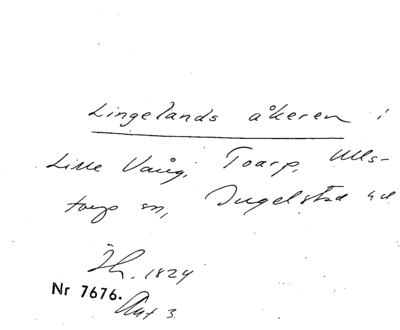 Lingelands åkeren i
Lille Vång, Toarp, Ulls-
torp sn, Ingelstad hd
Jh. 1824
Nr 7676.
Akt 3.